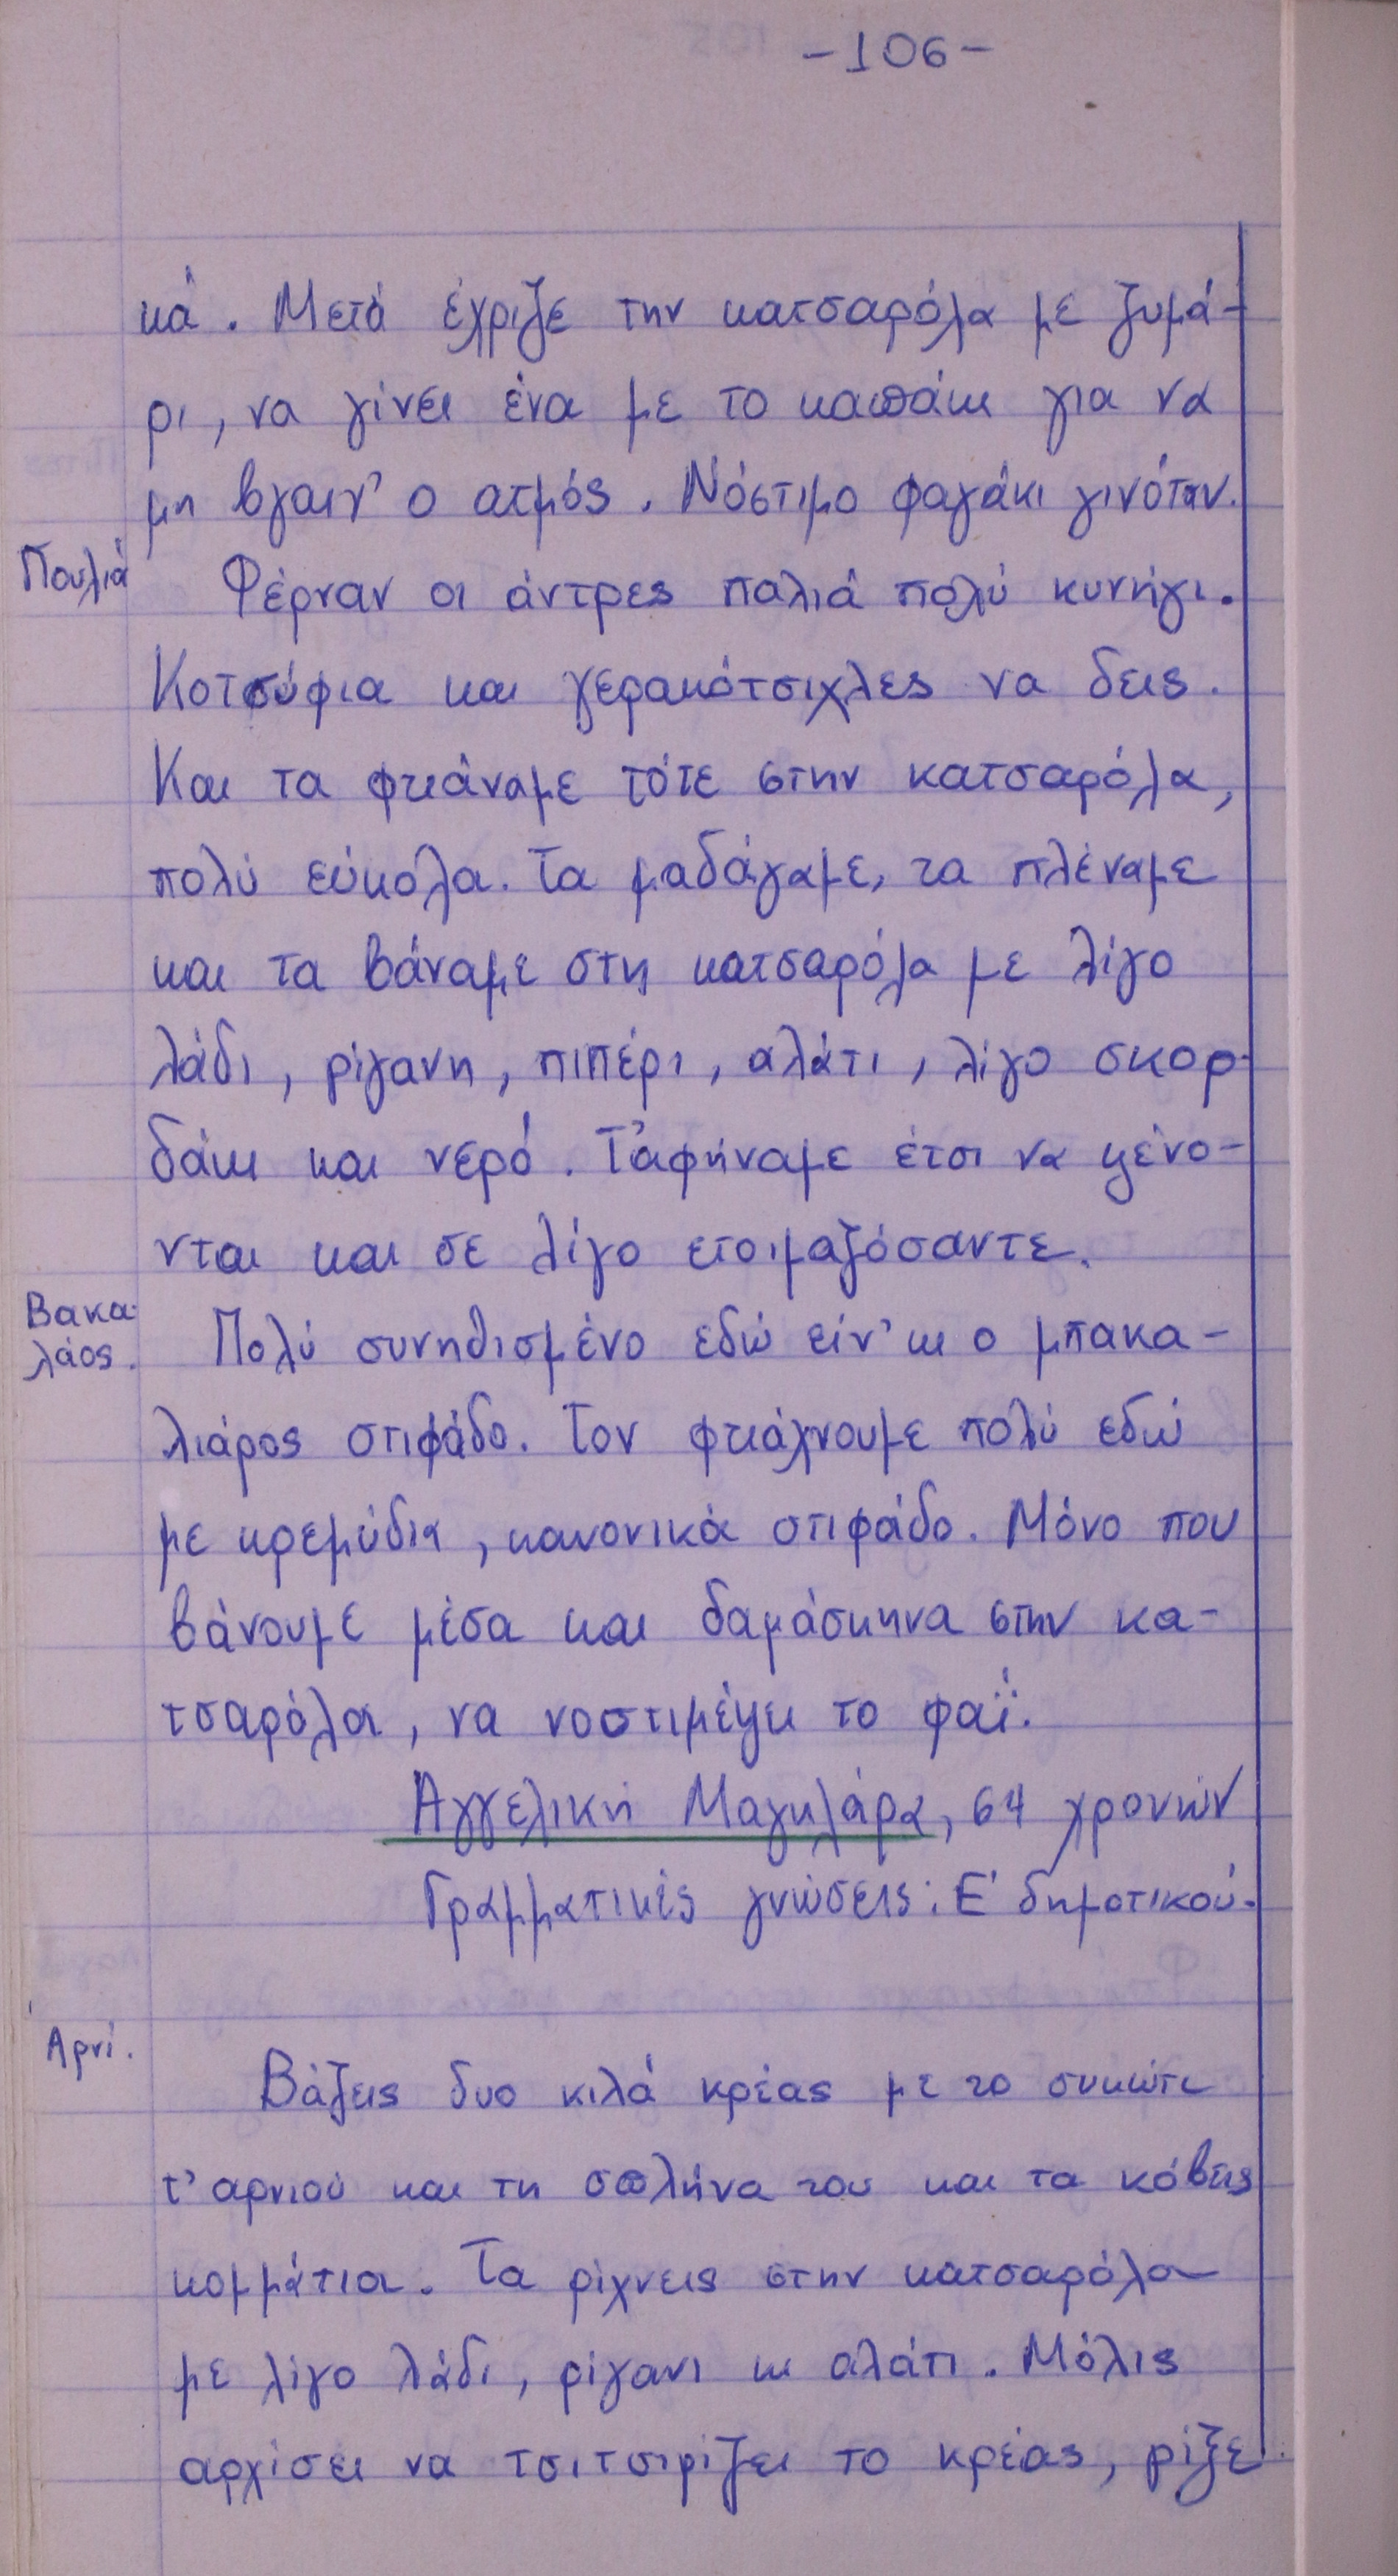 -106-
κά. Μετά έχριζε την κατσαρόλα με ζυμά-
ρι, να γίνει ένα με το καπάκι για να
μη βγαιν' ο ατμός. Νόστιμο φαγάκι γινόταν.
Πουλιά
Φέρναν οι άντρες παλιά πολύ κυνήγι.
Κοτσύφια και γερακότσιχλες να δεις.
Και τα φκιάναμε τότε στην κατσαρόλα,
πολύ εύκολα. Τα μαδάγαμε, τα πλέναμε
και τα βάναμε στη κατσαρόλα με λίγο
λάδι, ρίγανη, πιπέρι, αλάτι, λίγο σκορ-
δάκι και νερό. Τ'αφήναμε έτσι να ψένο-
νται και σε λίγο ετοιμαζόσαντε.
Βακα-
λάος.
Πολύ συνηθισμένο εδώ είν' κι ο μπακα-
λιάρος στιφάδο. Τον φκιάχνουμε πολύ εδώ
με κρεμύδια, κανονικά στιφάδο. Μόνο που
βάνουμε μέσα και δαμάσκηνα στην κα-
τσαρόλα, να νοστιμέψει το φαΐ.
Αγγελική Μαγκλάρα, 64 χρονών
Γραμματικές γνώσεις: Ε' δημοτικού.
Αρνί.
Βάζεις δυο κιλά κρέας με το συκώτι
τ' αρνιού και τη σωλήνα του και τα κόβεις
κομμάτια. Τα ρίχνεις στην κατσαρόλα
με λίγο λάδι, ρίγανι κι αλάτι. Μόλις
αρχίσει να τσιτσιρίζει το κρέας, ρίξε